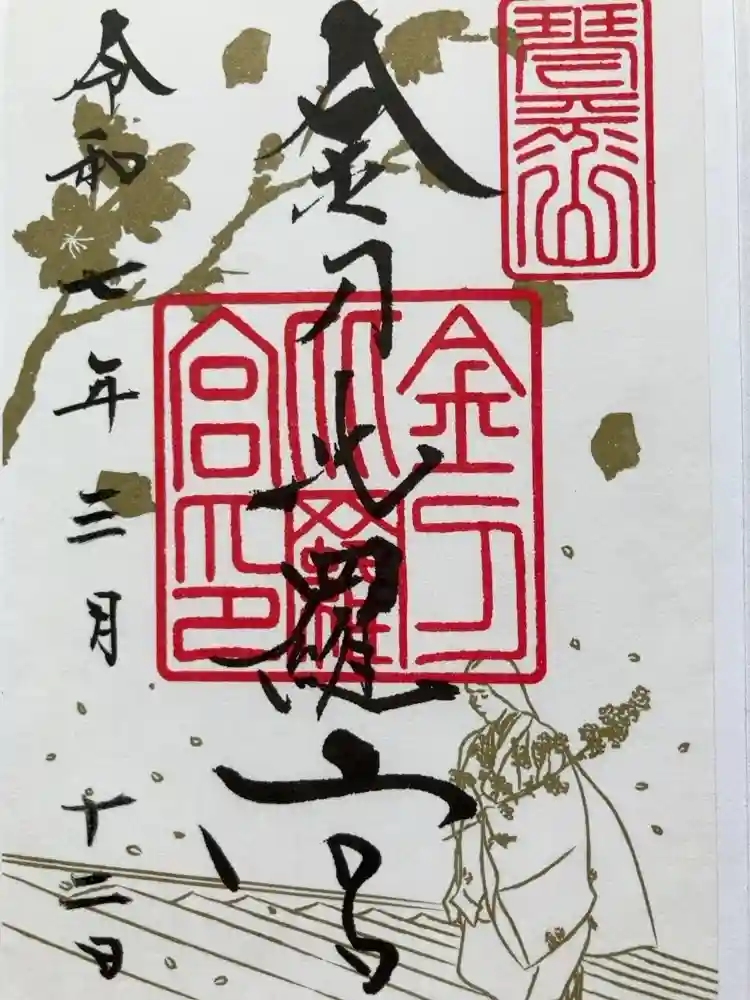 琴平山
金刀比羅宮
金刀比羅宮印
令和七年三月十二日